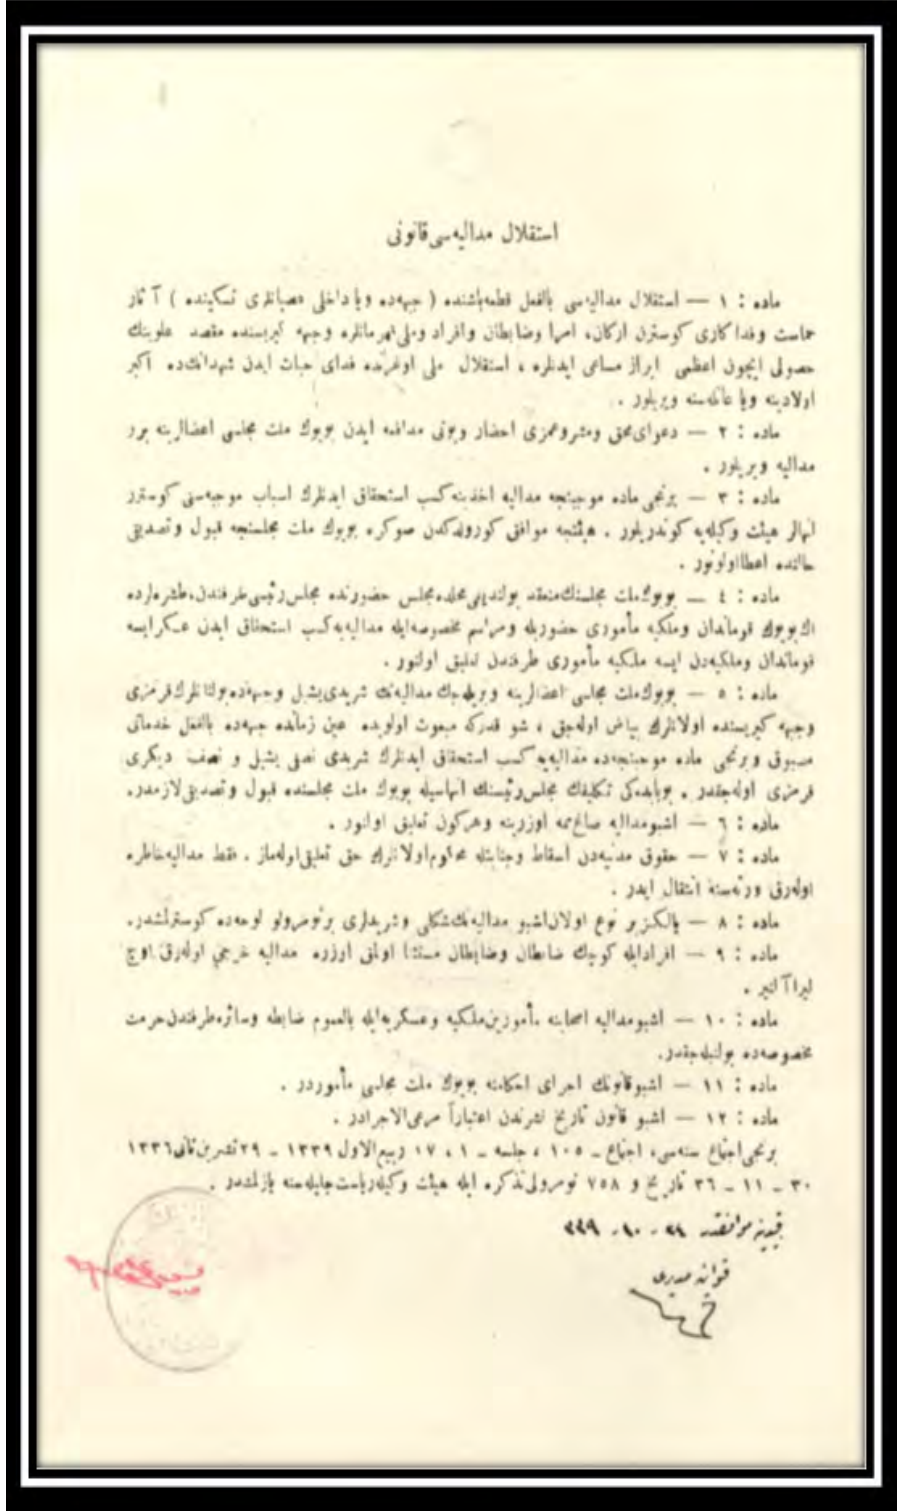 استقلال مدالیه‌سی قانونی
ماده : ١ — استقلال مدالیه‌سی بالفعل قطعه‌باشنده ( جبهه‌ده ویا داخلی عصیانلری تسکینده ) آثار
حماست وفداکاری کوسترن ارکان، امرا وضابطان وافراد وملی قهرمانلره وجبهه کیریسنده مقصد علوینك
حصولی ایچون اعظمی ابراز مساعی ایدنلره ، استقلال ملی اوغرنده فدای حیات ایدن شهدانك‌ده اکبر
اولادینه ویا عائله‌سنه ویریلور .
ماده : ٢ — دعوای محق ومشروعمزی احضار وبونی مدافعه ایدن بویوك ملت مجلسی اعضالرینه برر
مدالیه ویریلور .
ماده : ٣ — برنجی ماده موجبنجه مدالیه اخذینه کسب استحقاق ایدنلرك اسباب موجبه‌سنی کوسترر
انهالر هیئت وکیله‌یه کوندریلور . هیئتجه موافق کورولدکدن صوکره بویوك ملت مجلسنجه قبول وتصدیقی
حالنده اعطا اولونور .
ماده : ٤ — بویوك ملت مجلسنك منعقد بولندیغی محلده مجلس حضورنده مجلس رئیسی طرفندن، طشره‌لرده
اك بویوك قوماندان وملکیه مأموری حضوریله ومراسم مخصوصه ایله مدالیه‌یه کسب استحقاق ایدن عسکر ایسه
قوماندان وملکیه‌دن ایسه ملکیه مأموری طرفندن تعلیق اولنور .
ماده : ٥ — بویوك ملت مجلسی اعضالرینه ویریله‌جك مدالیه‌نك شریدی یشیل وجبهه‌ده بولنانلرك قرمزی
وجبهه کیریسنده اولانلرك بیاض اوله‌جق ، شو قدرکه مبعوث اولوبده عین زمانده جبهه‌ده بالفعل خدماتی
مسبوق وبرنجی ماده موجبنجه‌ده مدالیه‌یه کسب استحقاق ایدنلرك شریدی نصفی یشیل و نصف دیکری
قرمزی اوله‌جقدر . بوبابده‌کی تکلیفك مجلس رئیسنك انهاسیله بویوك ملت مجلسنده قبول وتصدیقی لازمدر.
ماده : ٦ — اشبو مدالیه صاغ ممه اوزرینه وهرکون تعلیق اولنور .
ماده : ٧ — حقوق مدنیه‌دن اسقاط وجنایتله محکوم اولانلرك حق تعلیقی اوله‌ماز . فقط مدالیه خاطره
اوله‌رق ورثه‌سنه انتقال ایدر .
ماده : ٨ — یالکز بر نوع اولان اشبو مدالیه‌نك شکلی وشریدلری بر نومرولو لوحه‌ده کوسترلمشدر.
ماده : ٩ — افرادایله کوچك ضابطان وضابطان مستثنا اولمق اوزره مدالیه خرجی اوله‌رق اوچ
لیرا آلنیر .
ماده : ١٠ — اشبو مدالیه اصحابنه مأمورین ملکیه وعسکریه‌ایله بالعموم ضابطه وسائره طرفندن حرمت
مخصوصه‌ده بولنیله‌جقدر.
ماده : ١١ — اشبو قانونك اجرای احکامنه بویوك ملت مجلسی مأموردر .
ماده : ١٢ — اشبو قانون تاریخ نشرندن اعتباراً مرعی‌الاجرادر .
برنجی اجتماع سنه‌سی، اجتماع ـ ١٠٥ ، جلسه ـ ١ ، ١٧ ربیع‌الاول ١٣٣٩ ـ ٢٩ تشرین ثانی ١٣٣٦
٣٠ ـ ١١ ـ ٣٦ تاریخ و ٧٥٨ نومرولی تذکره ایله هیئت وکیله ریاست جلیله‌سنه یازلمشدر .
قیدینه موافقدر
قوانین مدیری